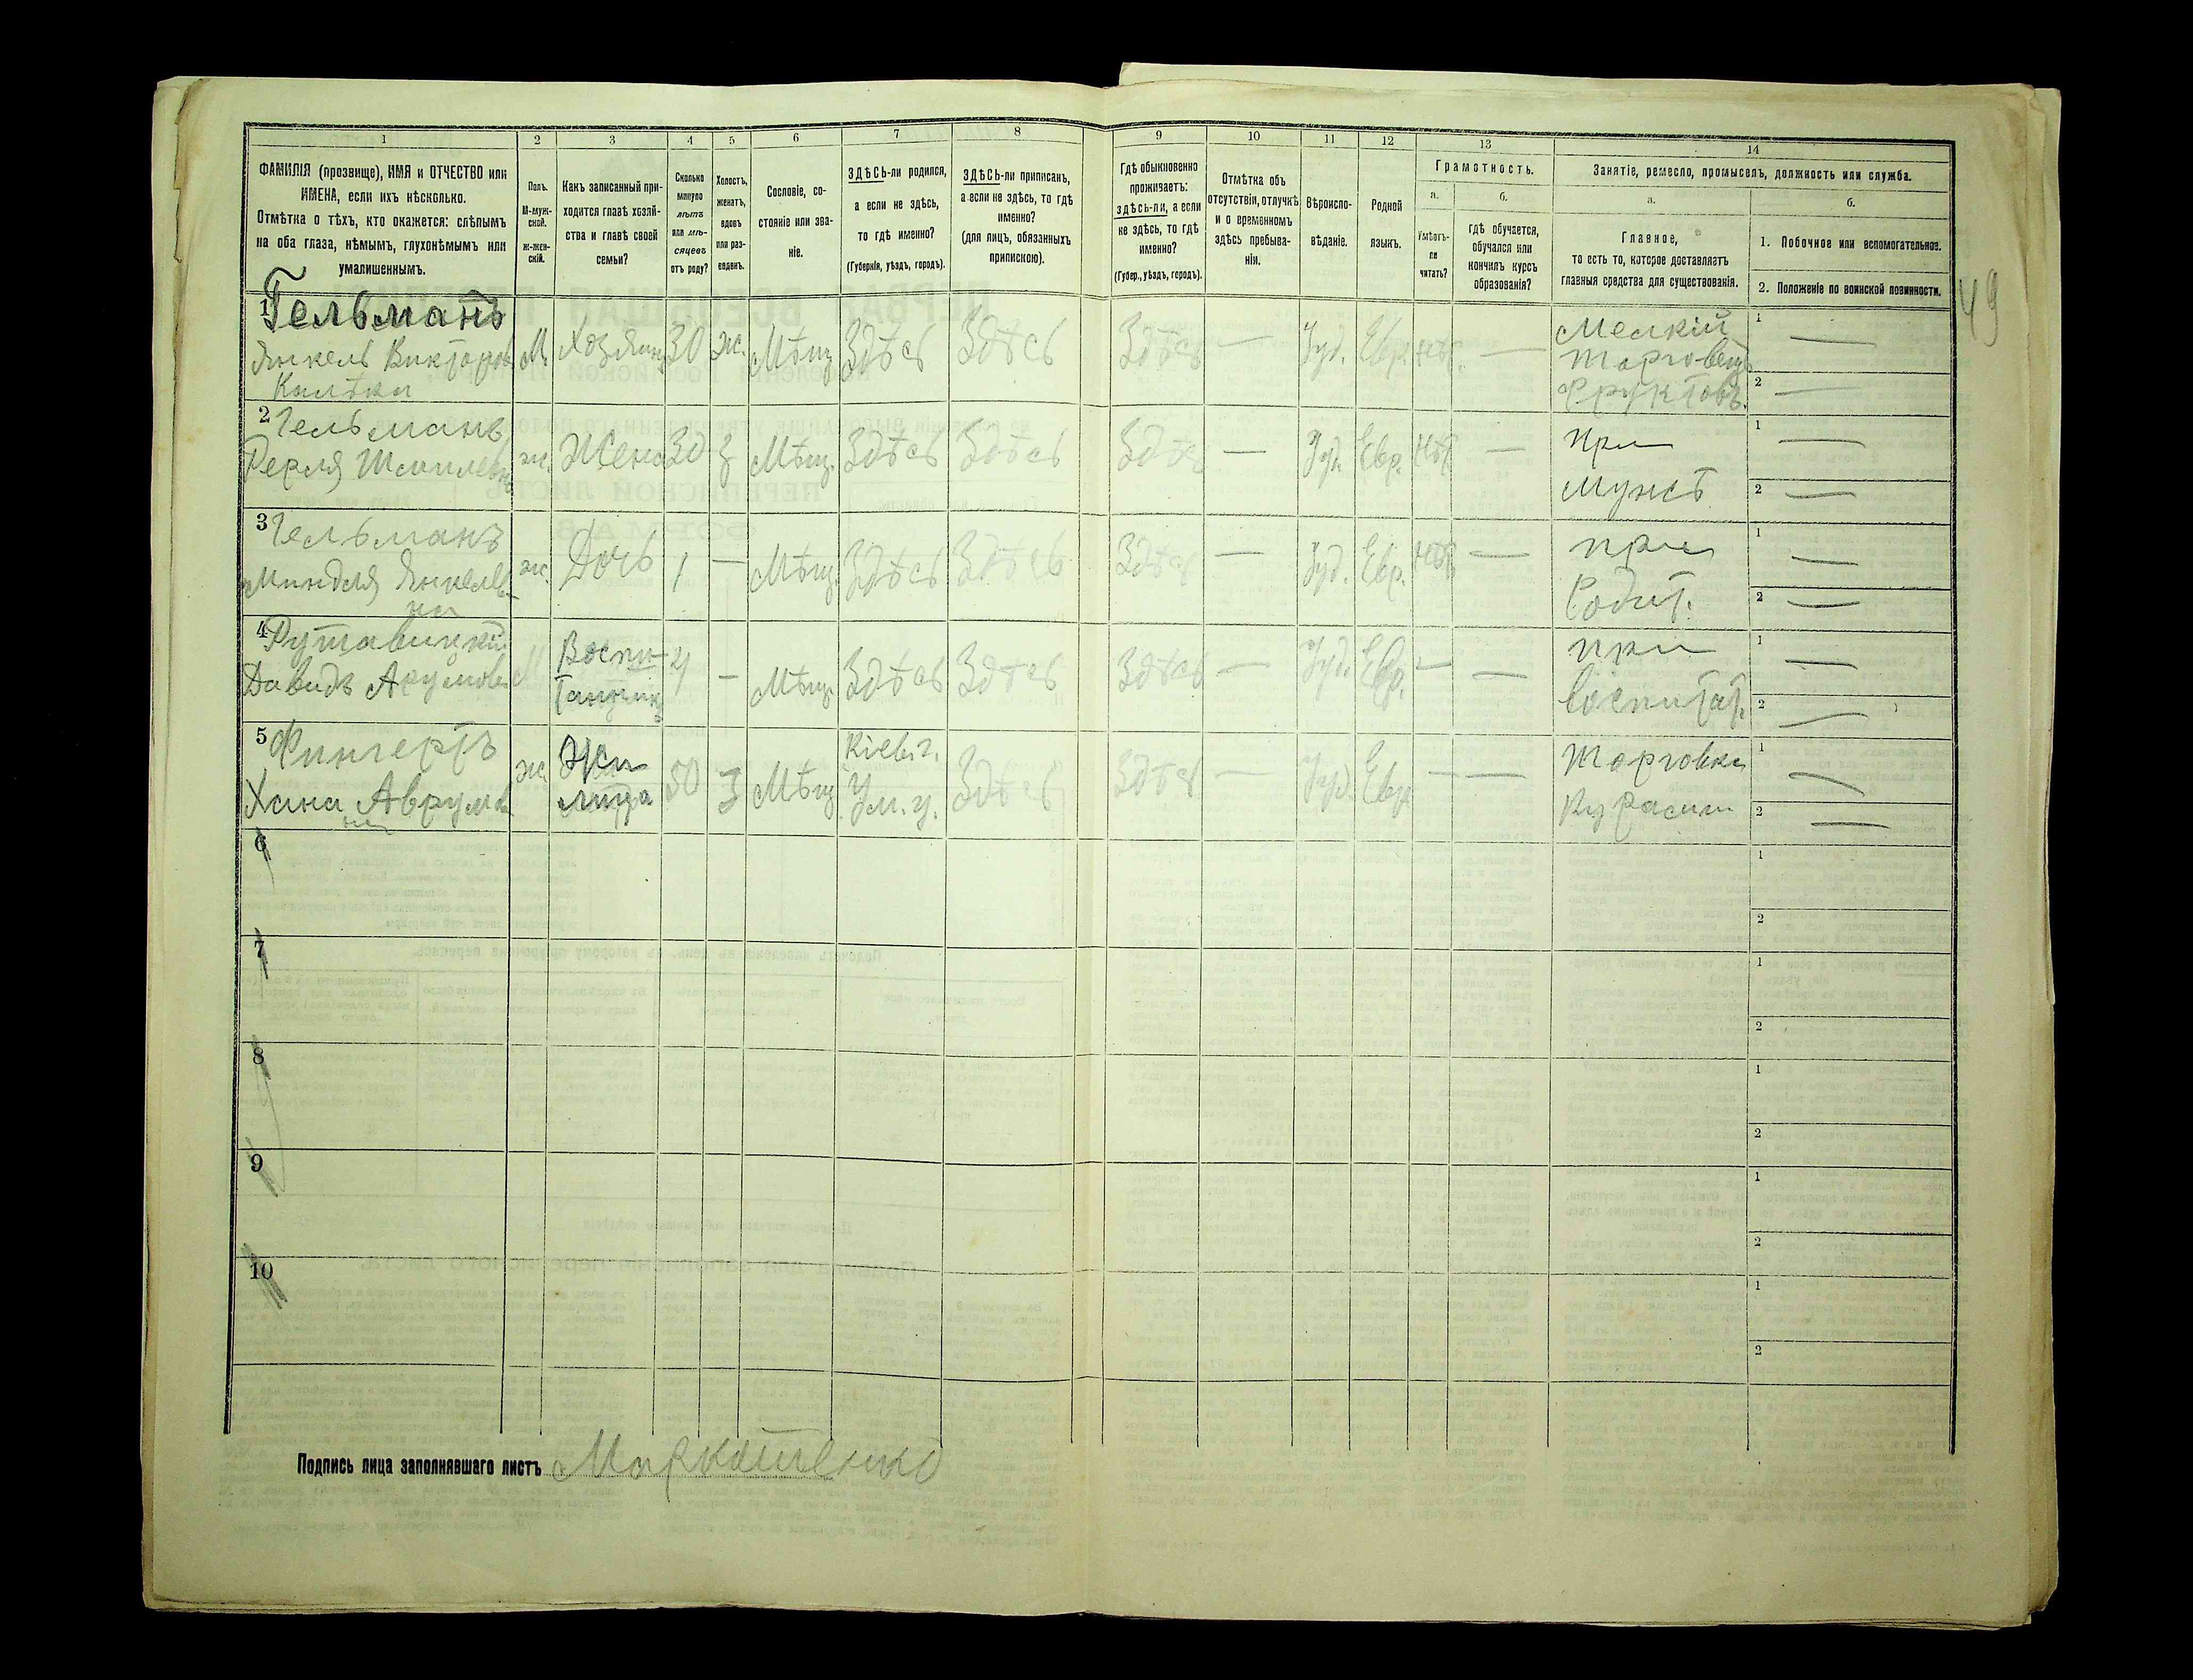 1 2 3 4 5 6 7 8 9 10 11 12 13 14
ФАМИЛІЯ (прозвище), ИМЯ и ОТЧЕСТВО или
ИМЕНА, если ихъ нѣсколько.
Отмѣтка о тѣхъ, кто окажется: слѣпымъ
на оба глаза, нѣмымъ, глухонѣмымъ или
умалишеннымъ.
Полъ.
М-муж-
ской.
Ж-жен-
скій.
Какъ записанный при-
ходится главѣ хозяй-
ства и главѣ своей
семьи?
Сколько
минуло
лѣтъ
или мѣ-
сяцевъ
отъ роду?
Холостъ,
женатъ,
вдовъ
или раз-
веденъ.
Сословіе, со-
стояніе или зва-
ніе.
ЗДѢСЬ-ли родился,
а если не здѣсь,
то гдѣ именно?
(Губернія, уѣздъ, городъ).
ЗДѢСЬ-ли приписанъ,
а если не здѣсь, то гдѣ
именно?
(для лицъ, обязанныхъ
припискою).
Гдѣ обыкновенно
проживаетъ:
здѣсь-ли, а если
не здѣсь, то гдѣ
именно?
(Губер., уѣздъ, городъ).
Отмѣтка объ
отсутствіи, отлучкѣ
и о временномъ
здѣсь пребыва-
ніи.
Вѣроиспо-
вѣданіе.
Родной
языкъ.
Грамотность.
а.
Умѣетъ-
ли
читать?
б.
гдѣ обучается,
обучался или
кончилъ курсъ
образованія?
Занятіе, ремесло, промыселъ, должность или служба.
а.
Главное,
то есть то, которое доставляетъ
главныя средства для существованія.
б.
1. Побочное или вспомогательное.
2. Положеніе по воинской повинности.
49
1 Гельманъ
Янкель
М. Хозяинъ 30 ж. Мѣщ. Здѣсь Здѣсь Здѣсь — Іуд. Евр. нѣт. —
Мелкій
Торговецъ
Фруктовъ.
1 —
2 —
2 Гельманъ
ж. Жена 30 з Мѣщ. Здѣсь Здѣсь Здѣсь — Іуд. Евр. Нѣт —
при
мужѣ
1 —
2 —
3 Гельманъ
Миндля Янкелев-
на
ж. Дочь 1 — Мѣщ. Здѣсь Здѣсь Здѣсь — Іуд. Евр. Нѣт —
при
Родит.
1 —
2 —
4
Давидъ
М Воспи-
танникъ
4 — Мѣщ. Здѣсь Здѣсь Здѣсь — Іуд. Евр. — —
при
воспитат.
1 —
2 —
5
Хана Аврумов
на
ж. Жи
лица
50 З Мѣщ. Кіев. г.
Ум. у.
Здѣсь Здѣсь — Іуд. Евр. — —
Торговка
1 —
2 —
6
1
2
7
1
2
8
1
2
9
1
2
10
1
2
Подпись лица заполнявшаго листъ